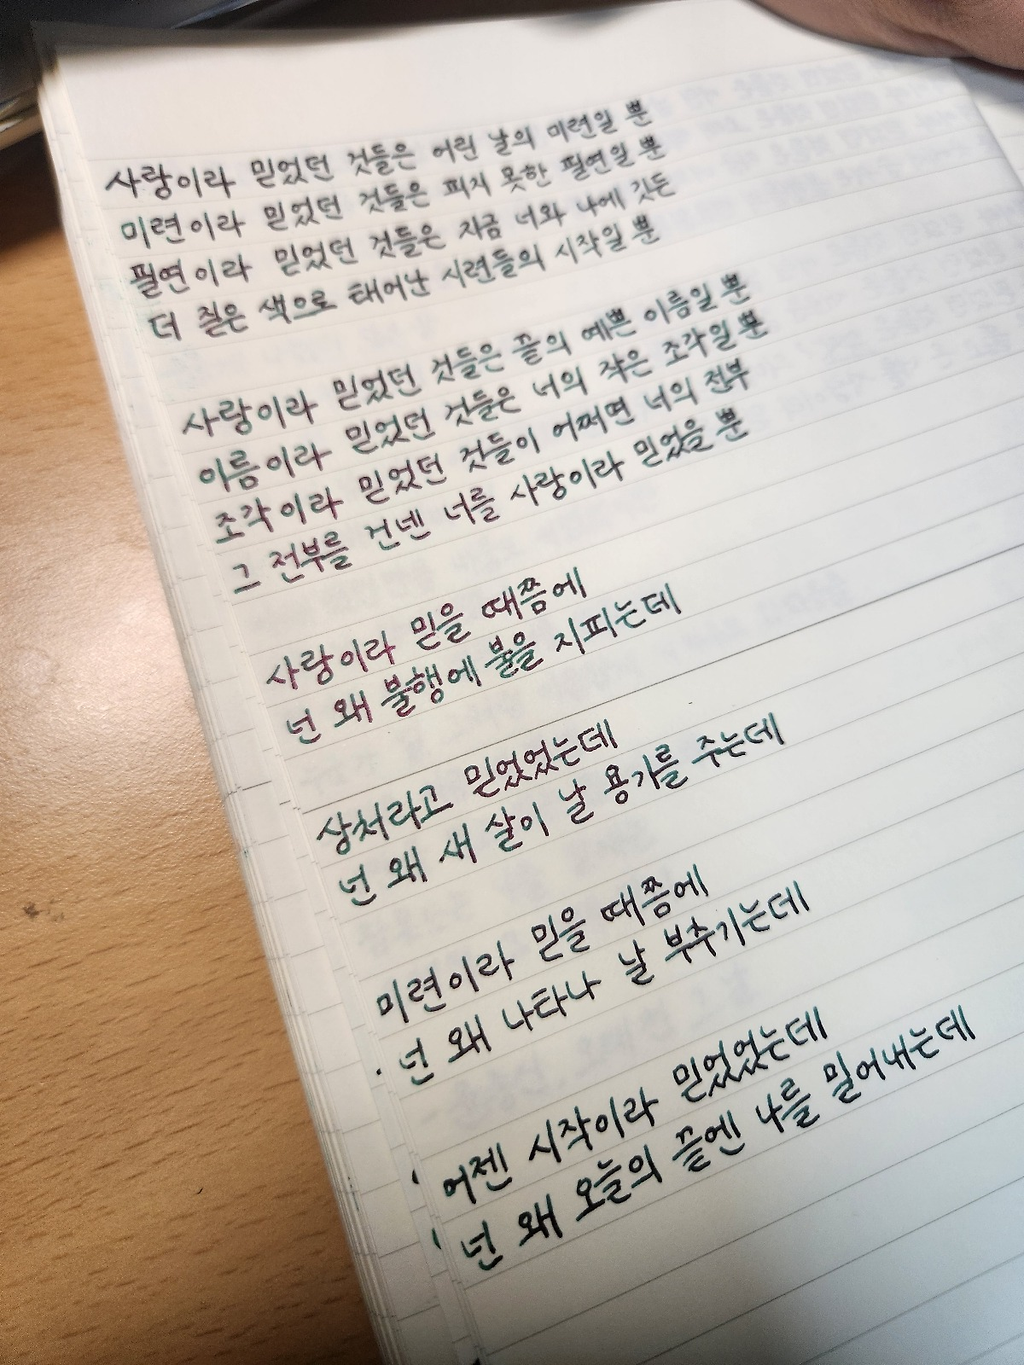 사랑이라 믿었던 것들은 어린 날의 미련일 뿐
미련이라 믿었던 것들은 피지 못한 필연일 뿐
필연이라 믿었던 것들은 지금 너와 나에 깃든
더 짙은 색으로 태어난 시련들의 시작일 뿐
사랑이라 믿었던 것들은 끝의 예쁜 이름일 뿐
이름이라 믿었던 것들은 너의 작은 조각일 뿐
조각이라 믿었던 것들이 어쩌면 너의 전부
그 전부를 건넨 너를 사랑이라 믿었을 뿐
사랑이라 믿을 때쯤에
넌 왜 불행에 불을 지피는데
상처라고 믿었었는데
넌 왜 새 살이 날 용기를 주는데
미련이라 믿을 때쯤에
넌 왜 나타나 날 부추기는데
어젠 시작이라 믿었었는데
넌 왜 오늘의 끝엔 나를 밀어내는데